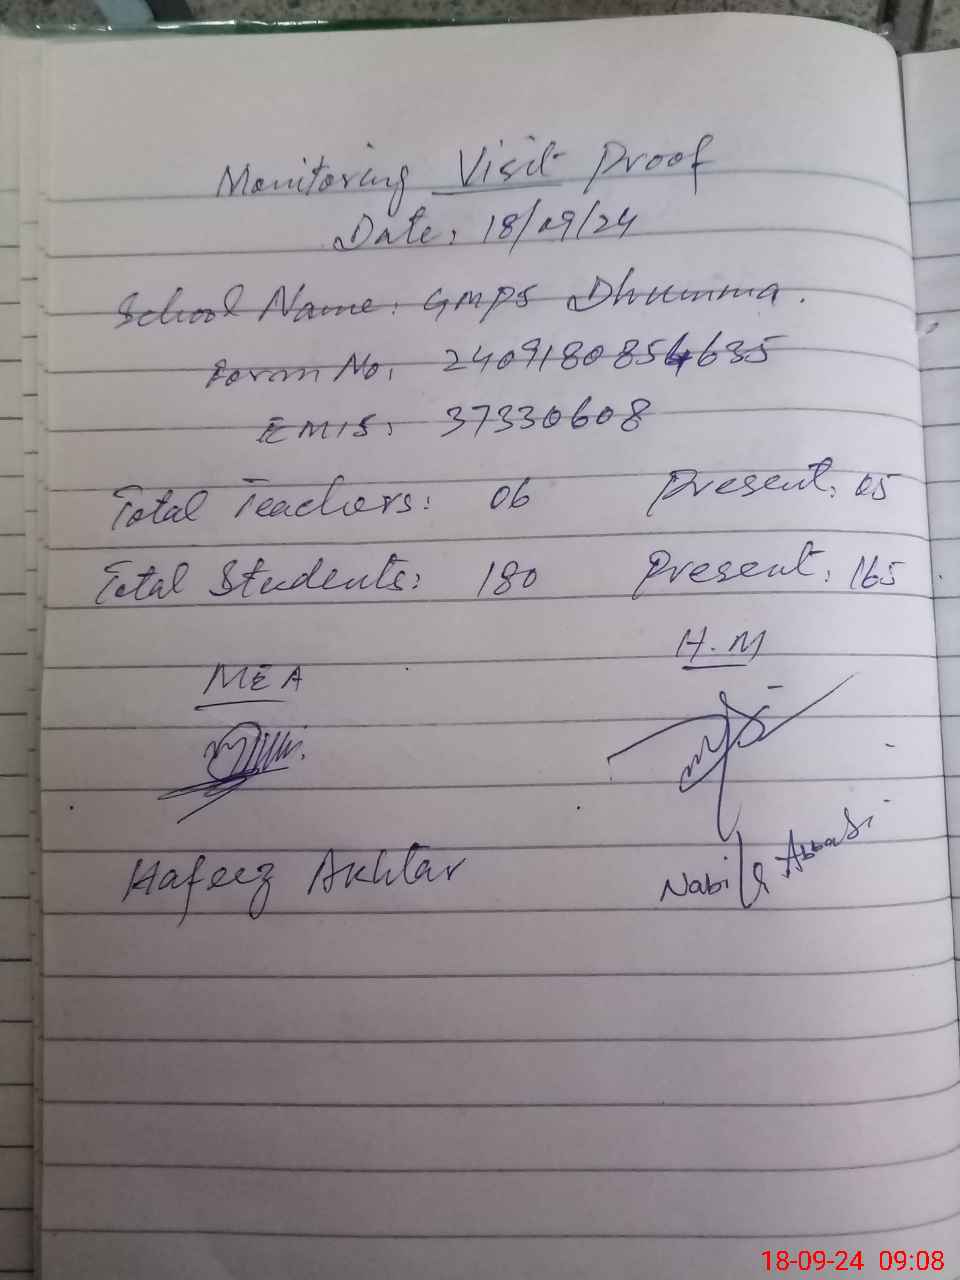 Monitoring Visit Proof
Date: 18/09/24
School Name: GMPS Dhumma.
Form No. 2409180854635
EMIS: 37330608
Total Teachers: 06 Present: 05
Total Students: 180 Present: 165
MEA H.M
Hafeez Akhtar Nabila Abbasi
18-09-24 09:08